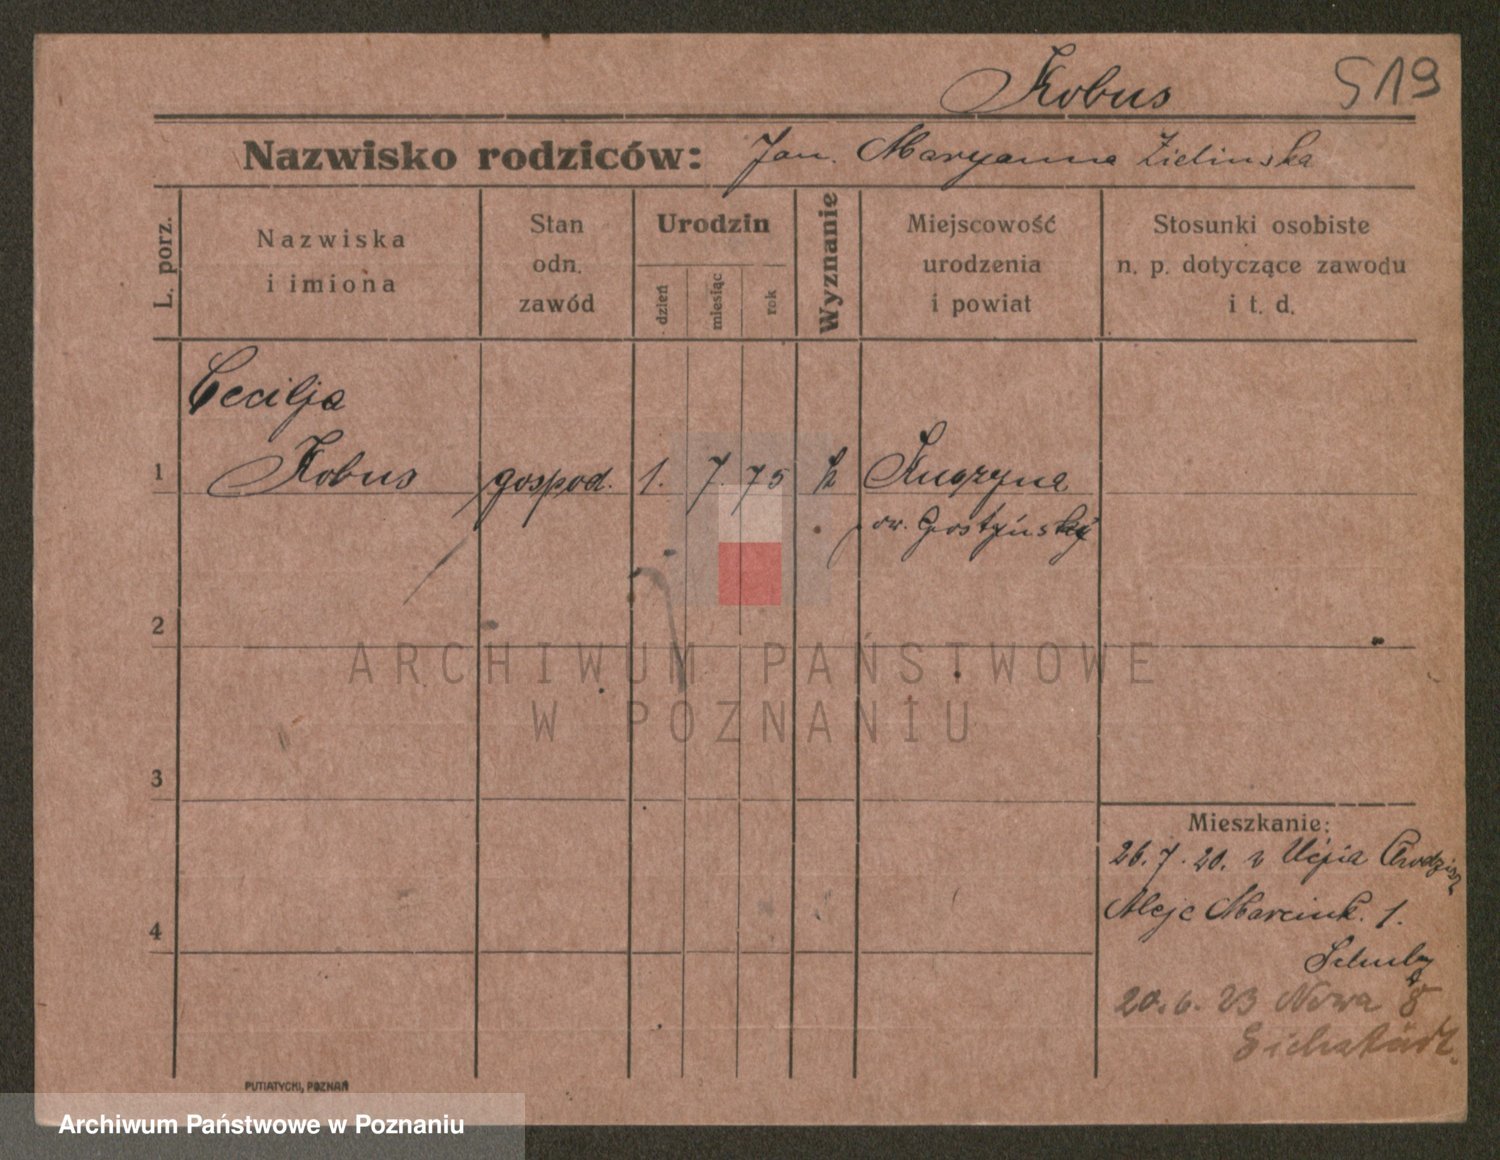 Kobus 519
Nazwisko rodziców: Jan. Maryanna Zielinska
L. porz.
Nazwiska
i imiona
Stan
odn.
zawód
Urodzin
dzień
miesiąc
rok
Wyznanie
Miejscowość
urodzenia
i powiat
Stosunki osobiste
n. p. dotyczące zawodu
i t. d.
Cecilja
1 Kobus gospod. 1. 7. 75 k
ow. Gostyński
2
ARCHIWUM PAŃSTWOWE
W POZNANIU
3
Mieszkanie:
26. 7. 20. v
4 Aleje Marcink. 1.
20. 6. 23 Nowa 8
PUTIATYCKI, POZNAŃ
Archiwum Państwowe w Poznaniu